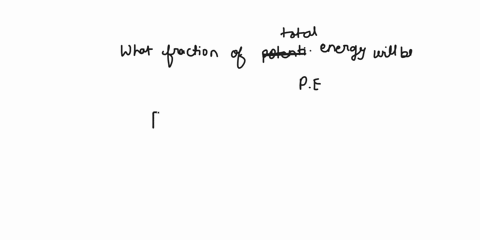 What fraction of total energy will be
P.E